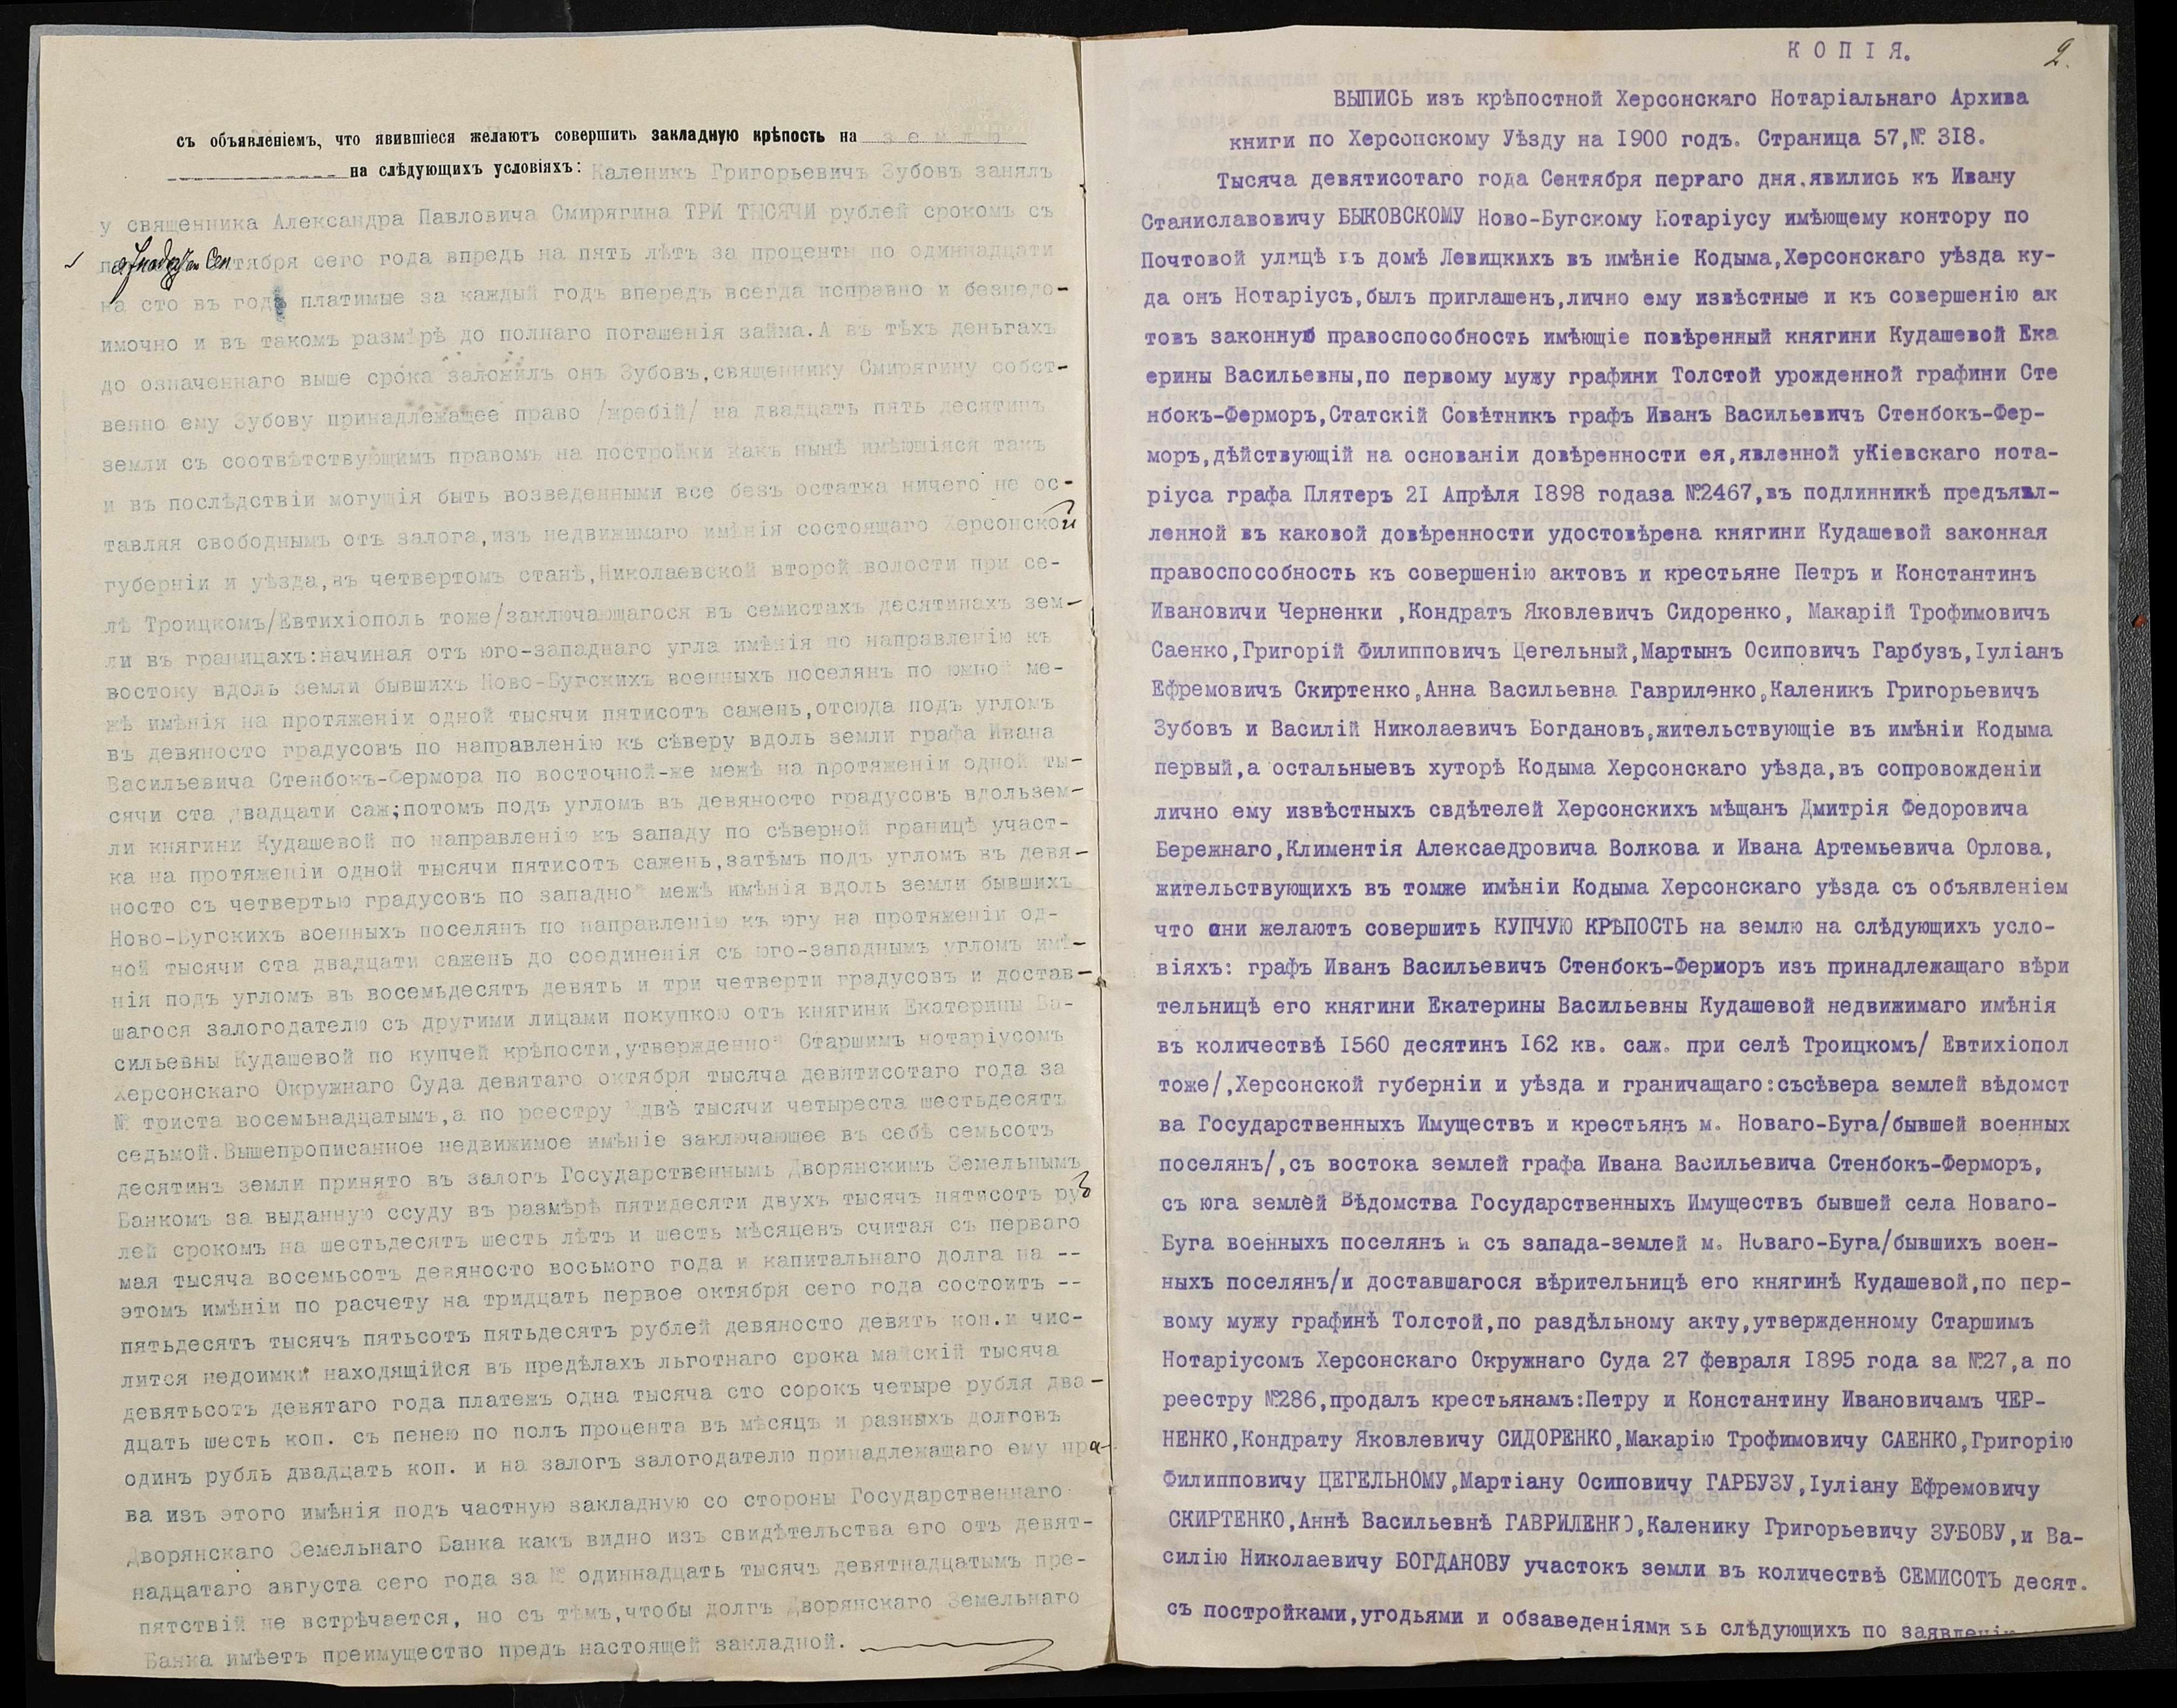 съ объявленіемъ, что явившіеся желаютъ совершить закладную крѣпость на землю
на слѣдующихъ условіяхъ: Каленикъ Григорьевичъ Зубовъ занялъ
у священника Александра Павловича Смирягина ТРИ ТЫСЯЧИ рублей срокомъ съ
октября сего года впредь на пять лѣтъ за проценты по одиннадцати
на сто въ годъ платимые за каждый годъ впередъ всегда исправно и безнедо-
имочно и въ такомъ размѣрѣ до полнаго погашенія займа.А въ тѣхъ деньгахъ
до означеннаго выше срока заложилъ онъ Зубовъ,священнику Смирягину собст-
венно ему Зубову принадлежащее право /жребій/ на двадцать пять десятинъ
земли съ соотвѣтствующимъ правомъ на постройки какъ нынѣ имѣющіяся такъ
и въ послѣдствіи могущія быть возведенными все безъ остатка ничего не ос-
тавляя свободнымъ отъ залога,изъ недвижимаго имѣнія состоящаго Херсонской
губерніи и уѣзда,въ четвертомъ станѣ,Николаевской второй волости при се-
лѣ Троицкомъ/Евтихіополь тоже/заключающагося въ семистахъ десятинахъ зем-
ли въ границахъ:начиная отъ юго-западнаго угла имѣнія по направленію къ
востоку вдоль земли бывшихъ Ново-Бугскихъ военныхъ поселянъ по южной ме-
жѣ имѣнія на протяженіи одной тысячи пятисотъ сажень,отсюда подъ угломъ
въ девяносто градусовъ по направленію къ сѣверу вдоль земли графа Ивана
Васильевича Стенбокъ-Фермора по восточной-же межѣ на протяженіи одной ты-
сячи ста двадцати саж;потомъ подъ угломъ въ девяносто градусовъ вдользем-
ли княгини Кудашевой по направленію къ западу по сѣверной границѣ участ-
ка на протяженіи одной тысячи пятисотъ сажень,затѣмъ подъ угломъ въ девя-
носто съ четвертью градусовъ по западной межѣ имѣнія вдоль земли бывшихъ
Ново-Бугскихъ военныхъ поселянъ по направленію къ югу на протяженіи од-
ной тысячи ста двадцати сажень до соединенія съ юго-западнымъ угломъ имѣ-
нія подъ угломъ въ восемьдесятъ девять и три четверти градусовъ и достав-
шагося залогодателю съ другими лицами покупкою отъ княгини Екатерины Ва-
сильевны Кудашевой по купчей крѣпости,утвержденной Старшимъ нотаріусомъ
Херсонскаго Окружнаго Суда девятаго октября тысяча девятисотаго года за
№ триста восемьнадцатымъ,а по реестру двѣ тысячи четыреста шестьдесятъ
седьмой.Вышепрописанное недвижимое имѣніе заключающее въ себѣ семьсотъ
десятинъ земли принято въ залогъ Государственнымъ Дворянскимъ Земельнымъ
Банкомъ за выданную ссуду въ размѣрѣ пятидесяти двухъ тысячъ пятисотъ руб
лей срокомъ на шестьдесятъ шесть лѣтъ и шесть мѣсяцевъ считая съ перваго
мая тысяча восемьсотъ девяносто восьмого года и капитальнаго долга на --
этомъ имѣніи по расчету на тридцать первое октября сего года состоитъ --
пятьдесятъ тысячъ пятьсотъ пятьдесятъ рублей девяносто девять коп.и чис-
лится недоимки находящійся въ предѣлахъ льготнаго срока майскій тысяча
девятьсотъ девятаго года платежъ одна тысяча сто сорокъ четыре рубля два-
дцать шесть коп. съ пенею по полъ процента въ мѣсяцъ и разныхъ долговъ
одинъ рубль двадцать коп. и на залогъ залогодателю принадлежащаго ему пра-
ва изъ этого имѣнія подъ частную закладную со стороны Государственнаго
Дворянскаго Земельнаго Банка какъ видно изъ свидѣтельства его отъ девят-
надцатаго августа сего года за № одиннадцать тысячъ девятнадцатымъ пре-
пятствій не встрѣчается, но съ тѣмъ,чтобы долгъ Дворянскаго Земельнаго
Банка имѣетъ преимущество предъ настоящей закладной.
КОПІЯ.
2.
ВЫПИСЬ изъ крѣпостной Херсонскаго Нотаріальнаго Архива
книги по Херсонскому Уѣзду на 1900 годъ. Страница 57,№ 318.
Тысяча девятисотаго года Сентября перваго дня.явились къ Ивану
Станиславовичу БЫКОВСКОМУ Ново-Бугскому Нотаріусу имѣющему контору по
Почтовой улицѣ въ домѣ Левицкихъ въ имѣніе Кодыма,Херсонскаго уѣзда ку-
да онъ Нотаріусъ,былъ приглашенъ,лично ему извѣстные и къ совершенію ак
товъ законную правоспособность имѣющіе повѣренный княгини Кудашевой Ека
ерины Васильевны,по первому мужу графини Толстой урожденной графини Сте
нбокъ-Ферморъ,Статскій Совѣтникъ графъ Иванъ Васильевичъ Стенбокъ-Фер-
моръ,дѣйствующій на основаніи довѣренности ея,явленной уКіевскаго нота-
ріуса графа Плятеръ 21 Апрѣля 1898 годаза №2467,въ подлинникѣ предъявл-
ленной въ каковой довѣренности удостовѣрена княгини Кудашевой законная
правоспособность къ совершенію актовъ и крестьяне Петръ и Константинъ
Ивановичи Черненки ,Кондратъ Яковлевичъ Сидоренко, Макарій Трофимовичъ
Саенко,Григорій Филипповичъ Цегельный,Мартынъ Осиповичъ Гарбузъ,Іуліанъ
Ефремовичъ Скиртенко,Анна Васильевна Гавриленко,Каленикъ Григорьевичъ
Зубовъ и Василій Николаевичъ Богдановъ,жительствующіе въ имѣніи Кодыма
первый,а остальныевъ хуторѣ Кодыма Херсонскаго уѣзда,въ сопровожденіи
лично ему извѣстныхъ свдѣтелей Херсонскихъ мѣщанъ Дмитрія Федоровича
Бережнаго,Климентія Алексаедровича Волкова и Ивана Артемьевича Орлова,
жительствующихъ въ томже имѣніи Кодыма Херсонскаго уѣзда съ объявленіем
что они желаютъ совершить КУПЧУЮ КРѢПОСТЬ на землю на слѣдующихъ усло-
віяхъ: графъ Иванъ Васильевичъ Стенбокъ-Ферморъ изъ принадлежащаго вѣри
тельницѣ его княгини Екатерины Васильевны Кудашевой недвижимаго имѣнія
въ количествѣ 1560 десятинъ 162 кв. саж. при селѣ Троицкомъ/ Евтихіопол
тоже/,Херсонской губерніи и уѣзда и граничащаго:съсѣвера землей вѣдомст
ва Государственныхъ Имуществъ и крестьянъ м. Новаго-Буга/бывшей военных
поселянъ/,съ востока землей графа Ивана Васильевича Стенбокъ-Ферморъ,
съ юга землей Вѣдомства Государственныхъ Имуществъ бывшей села Новаго-
Буга военныхъ поселянъ и съ запада-землей м. Новаго-Буга/бывшихъ воен-
ныхъ поселянъ/и доставшагося вѣрительницѣ его княгинѣ Кудашевой,по пер-
вому мужу графинѣ Толстой,по раздѣльному акту,утвержденному Старшимъ
Нотаріусомъ Херсонскаго Окружнаго Суда 27 февраля 1895 года за №27,а по
реестру №286,продалъ крестьянамъ:Петру и Константину Ивановичамъ ЧЕР-
НЕНКО,Кондрату Яковлевичу СИДОРЕНКО,Макарію Трофимовичу САЕНКО,Григорію
Филипповичу ЦЕГЕЛЬНОМУ,Мартіану Осиповичу ГАРБУЗУ,Іуліану Ефремовичу
СКИРТЕНКО,Аннѣ Васильевнѣ ГАВРИЛЕНКО,Каленику Григорьевичу ЗУБОВУ,и Ва-
силію Николаевичу БОГДАНОВУ участокъ земли въ количествѣ СЕМИСОТЪ десят.
съ постройками,угодьями и обзаведеніями въ слѣдующихъ по заявленію